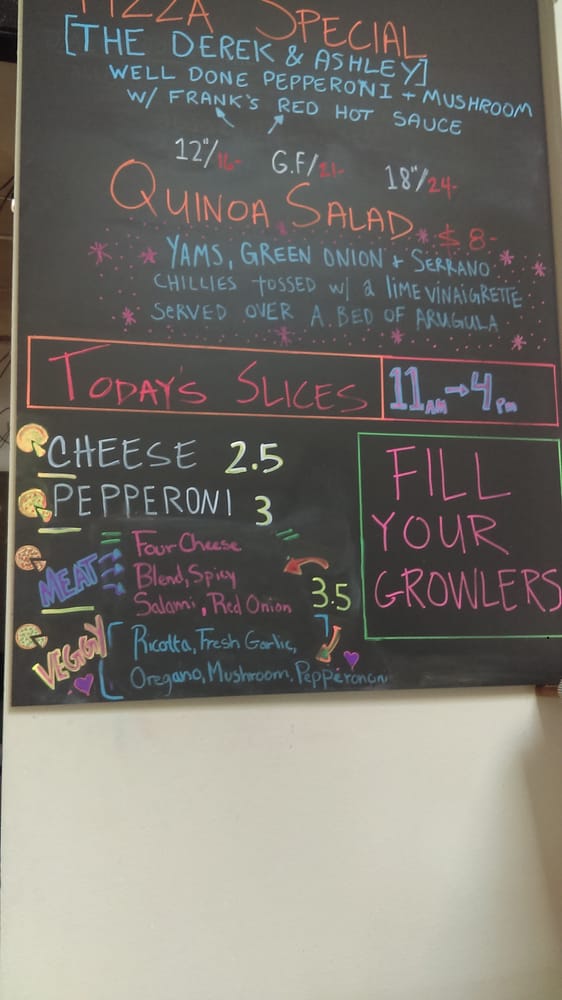 PIZZA SPECIAL
[THE DEREK & ASHLEY]
WELL DONE PEPPERONI + MUSHROOM
W/ FRANK'S RED HOT SAUCE
12"/16- G.F/21- 18"/24-
QUINOA SALAD $8-
YAMS, GREEN ONION + SERRANO
CHILLIES tOSSED w/ a lIME VINAIGRETTE
SERVED OVER A BED OF ARUGULA
TODAY'S SLICES 11AM→4PM
CHEESE 2.5
PEPPERONI 3
MEAT
Four Cheese
Blend, Spicy
Salami, Red Onion
3.5
VEGGY
Ricotta, Fresh Garlic,
Oregano, Mushroom, Pepperoncini
FILL
YOUR
GROWLERS